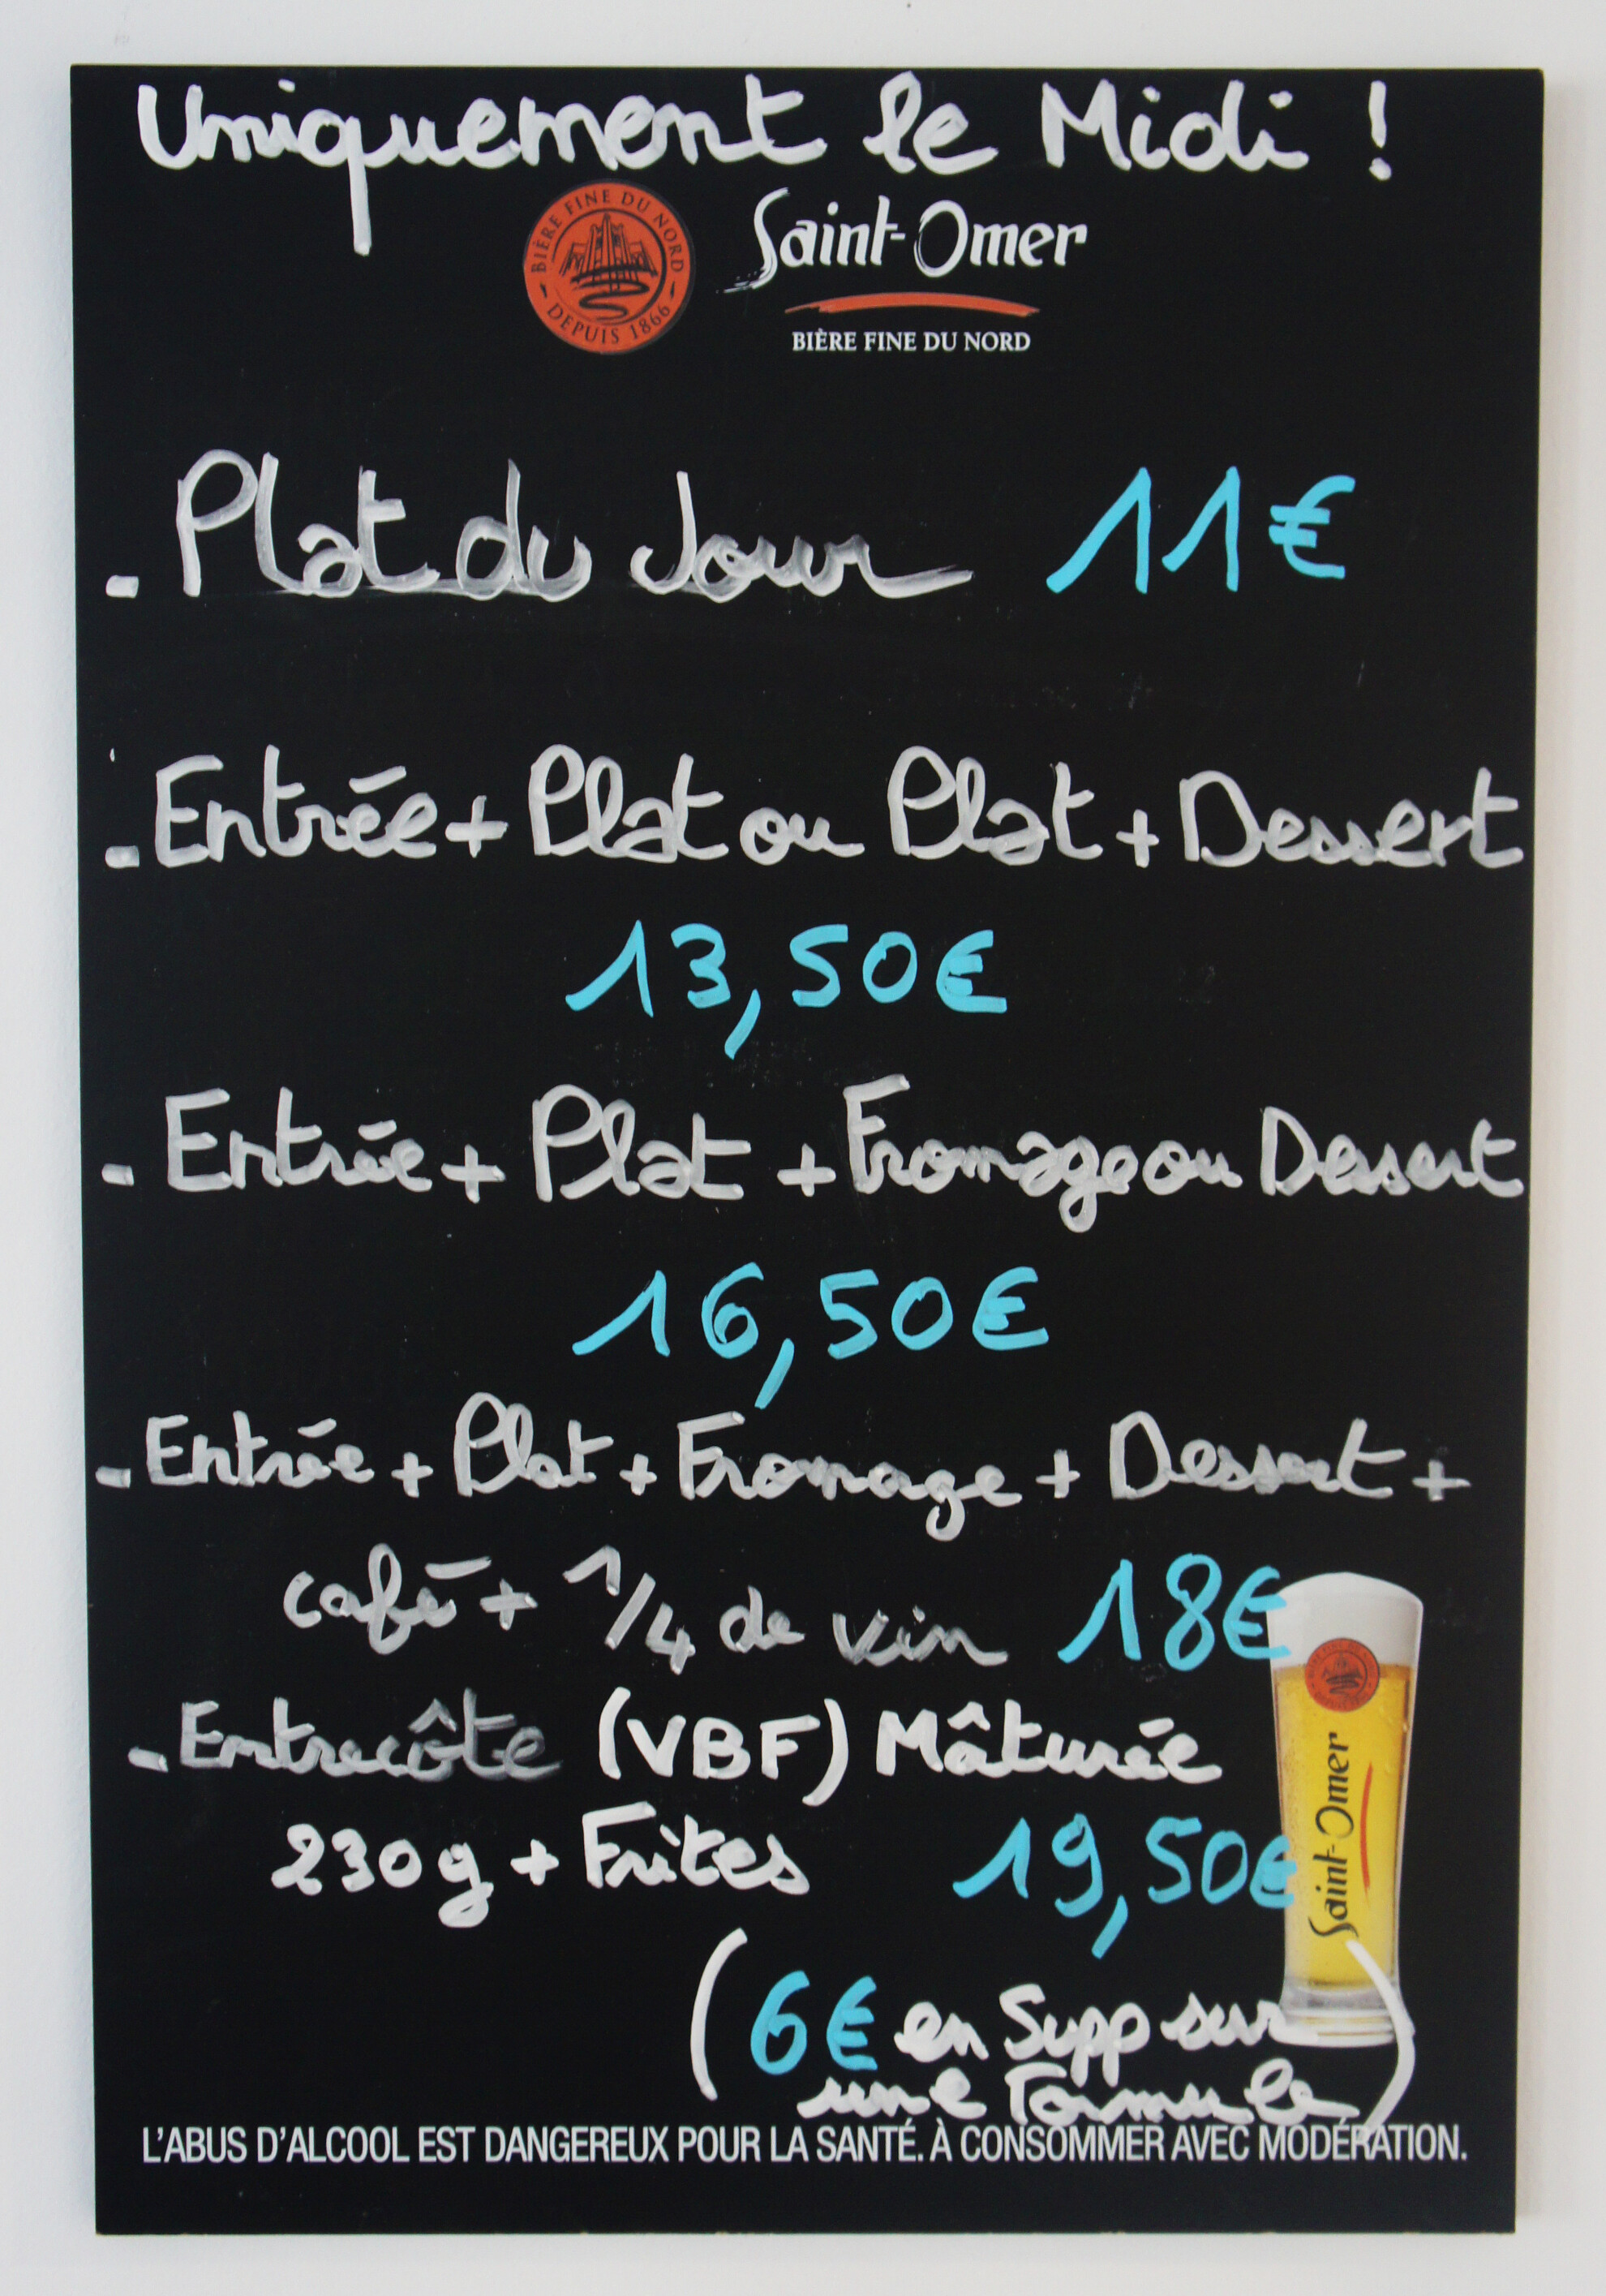 Uniquement le Midi !
BIÈRE FINE DU NORD
- DEPUIS 1866 -
Saint-Omer
BIÈRE FINE DU NORD
- Plat du Jour 11€
- Entrée + Plat ou Plat + Dessert
13,50€
- Entrée + Plat + Fromage ou Dessert
16,50€
- Entrée + Plat + Fromage + Dessert +
café + 1/4 de vin 18€
- Entrecôte (VBF) Mâturée
230g + Frites 19,50€
Saint-Omer
(6€ en Supp sur
une Formule)
L'ABUS D'ALCOOL EST DANGEREUX POUR LA SANTÉ. À CONSOMMER AVEC MODÉRATION.